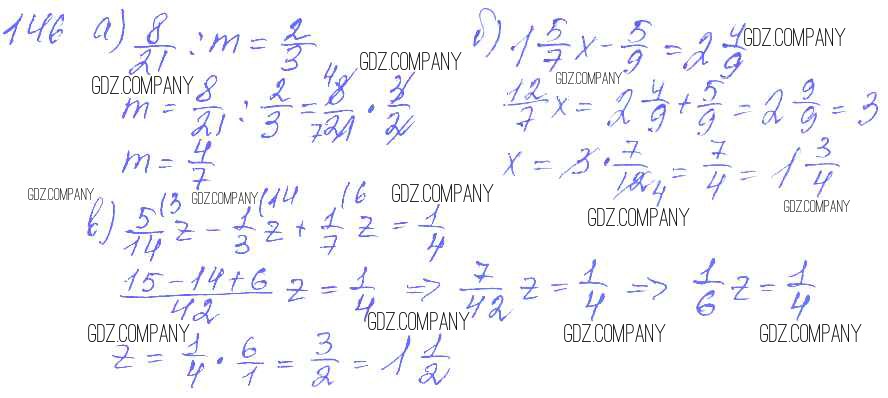 146 а) 8/21 : m = 2/3
m = 8/21 : 2/3 = 8/21 · 3/2
m = 4/7
б) 1 5/7 x - 5/9 = 2 4/9
12/7 x = 2 4/9 + 5/9 = 2 9/9 = 3
x = 3 · 7/12 = 7/4 = 1 3/4
в) 5/14 z - 1/3 z + 1/7 z = 1/4
(3 (14 (6
15 - 14 + 6/42 z = 1/4 => 7/42 z = 1/4 => 1/6 z = 1/4
z = 1/4 · 6/1 = 3/2 = 1 1/2
GDZ.COMPANY
GDZ.COMPANY
GDZ.COMPANY
GDZ.COMPANY
GDZ.COMPANY
GDZ.COMPANY
GDZ.COMPANY
GDZ.COMPANY
GDZ.COMPANY
GDZ.COMPANY
GDZ.COMPANY
GDZ.COMPANY
GDZ.COMPANY